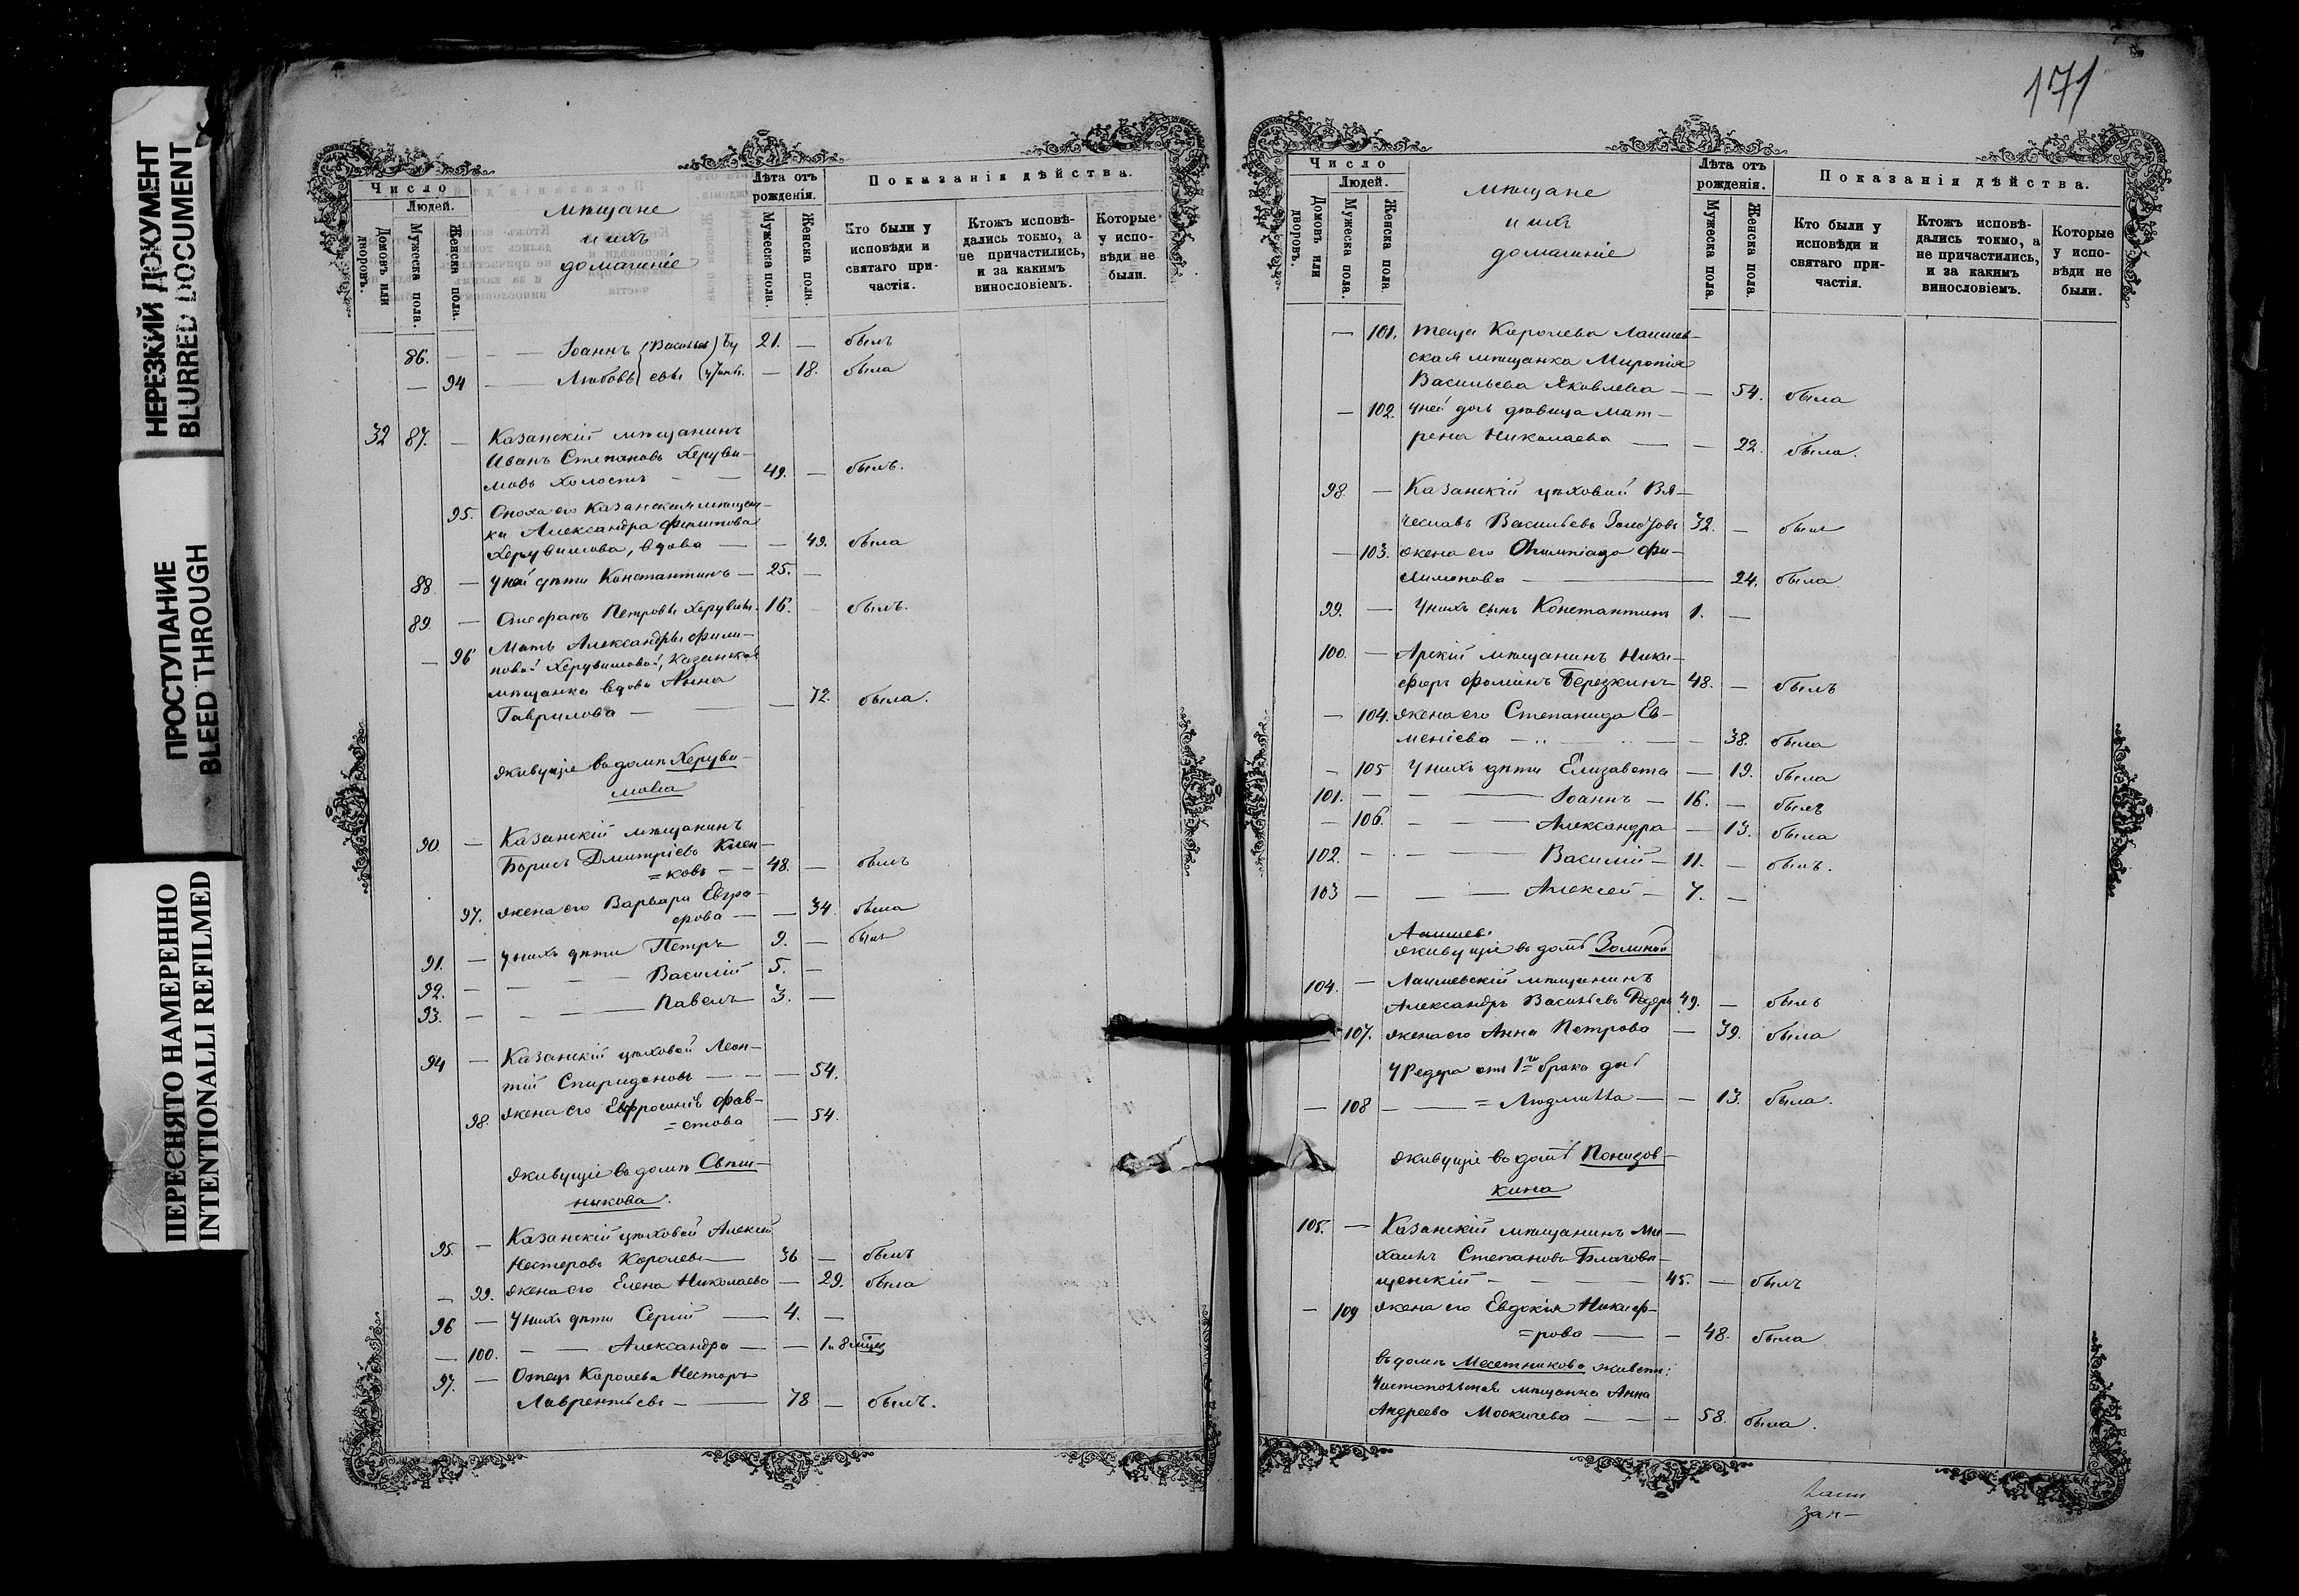 НЕРЕЗКИЙ ДОКУМЕНТ
BLURRED DOCUMENT
ПРОСТУПАНИЕ
BLEED THROUGH
ПЕРЕСНЯТО НАМЕРЕННО
INTENTIONALLI REFILMED
Число
Людей.
Домовъ или дворовъ.
Мужеска пола.
Женска пола.
Мѣщане
и ихъ
домашніе
Лѣта отъ рожденія.
Мужеска пола.
Женска пола.
Показанія дѣйства.
Кто были у исповѣди и святаго причастія.
Ктожъ исповѣ-
дались токмо, а
не причастились,
и за какимъ
винословіемъ.
Которые
у испо-
вѣди не
были.
86. — — Іоаннъ Василье 21. — былъ
— 94 — Любовь евы — 18. была
32 87. — Казанскій мѣщанинъ
Иванъ Степановъ Херуви-
мовъ холостъ — — 49. — былъ.
95. Сноха его Казанская мѣщан-
ка Александра Филипова
Херувимова, вдова — — 49. была
88. — У ней дѣти Константинъ — 25. —
89. — Стефанъ Петровъ Херувим. 16. — былъ.
— 96 Мать Александры Фили-
повой Херувимовой, Казанская
мѣщанка вдова Анна
Гаврилова — — — 72. была.
Живущіе въ домѣ Херуви-
мова
90. — Казанскій мѣщанинъ
Борисъ Дмитріевъ Клен-
=ковъ — — 48. — былъ
97. Жена его Варвара Евгра-
фова — — 34. была
91. — У нихъ дѣти Петръ 9. — былъ
92. — — — Василій 5. —
93. — — — Павелъ 3. —
94 — Казанскій цѣховой Леон-
тій Спиридоновъ — — — 54.
98. Жена его Евфросинія Фав-
=стова — 54.
Живущіе въ домѣ Свѣш-
никова.
95. — Казанскій цѣховой Алексѣй
Несторовъ Королевъ — 36 — былъ
— 99. Жена его Елена Николаева — 29. была
96 — У нихъ дѣти Сергій — 4. —
— 100. — — Александра — — 1 и 8 мѣс
97. — Отецъ Королева Несторъ
Лаврентьевъ — — 78 — былъ.
171
Число
Людей.
Домовъ или дворовъ.
Мужеска пола.
Женска пола.
Мѣщане
и ихъ
домашніе
Лѣта отъ рожденія.
Мужеска пола.
Женска пола.
Показанія дѣйства.
Кто были у
исповѣди и
святаго при-
частія.
Ктожъ исповѣ-
дались токмо, а
не причастились,
и за какимъ
винословіемъ.
Которые
у испо-
вѣди не
были.
— 101. Теща Королева Лаишев-
ская мѣщанка Миропія
Васильева Яковлева — — 54. была
— 102. У ней дочь дѣвица Мат-
рена Николаева — — 22. была.
98. — Казанскій цѣховой Вя-
чеславъ Васильевъ 32. — былъ
— 103. Жена его Олимпіада Фи-
лимонова — 24. была
99. — У нихъ сынъ Константинъ 1. —
100. — Арскій мѣщанинъ Ники-
форъ Фоминъ Березкинъ 48. — былъ
— 104. Жена его Степанида Ев-
меніева — — 38. была
— 105 У нихъ дѣти Елизавета — 19. была
101. — — — Іоаннъ — 16. — былъ
— 106. — — Александра — 13. была
102. — — — Василій — 11. — былъ.
103 — — — Алексѣй — 7. —
Лаишев.
Живущіе въ домѣ Золиной
104. — Лаишевскій мѣщанинъ
Александръ Васильевъ Редеръ 49. — былъ
— 107. Жена его Анна Петрова — 39. была
У Редера отъ 1го брака дочь
— 108 — — = Людмилла — — 13. была.
Живущіе въ домѣ Понизов-
кина
105. — Казанскій мѣщанинъ Ми-
хаилъ Степановъ Благовѣ-
щенскій — — — 45. — былъ
— 109 Жена его Евдокія Никиф-
=рова — — 48. была
Въ домѣ живетъ:
Чистопольская мѣщанка Анна
Андреева Москичева — — — 58. была.